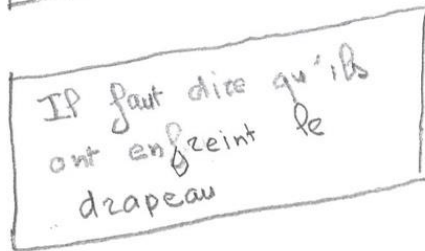 Il faut dire qu'ils
ont enfreint le
drapeau